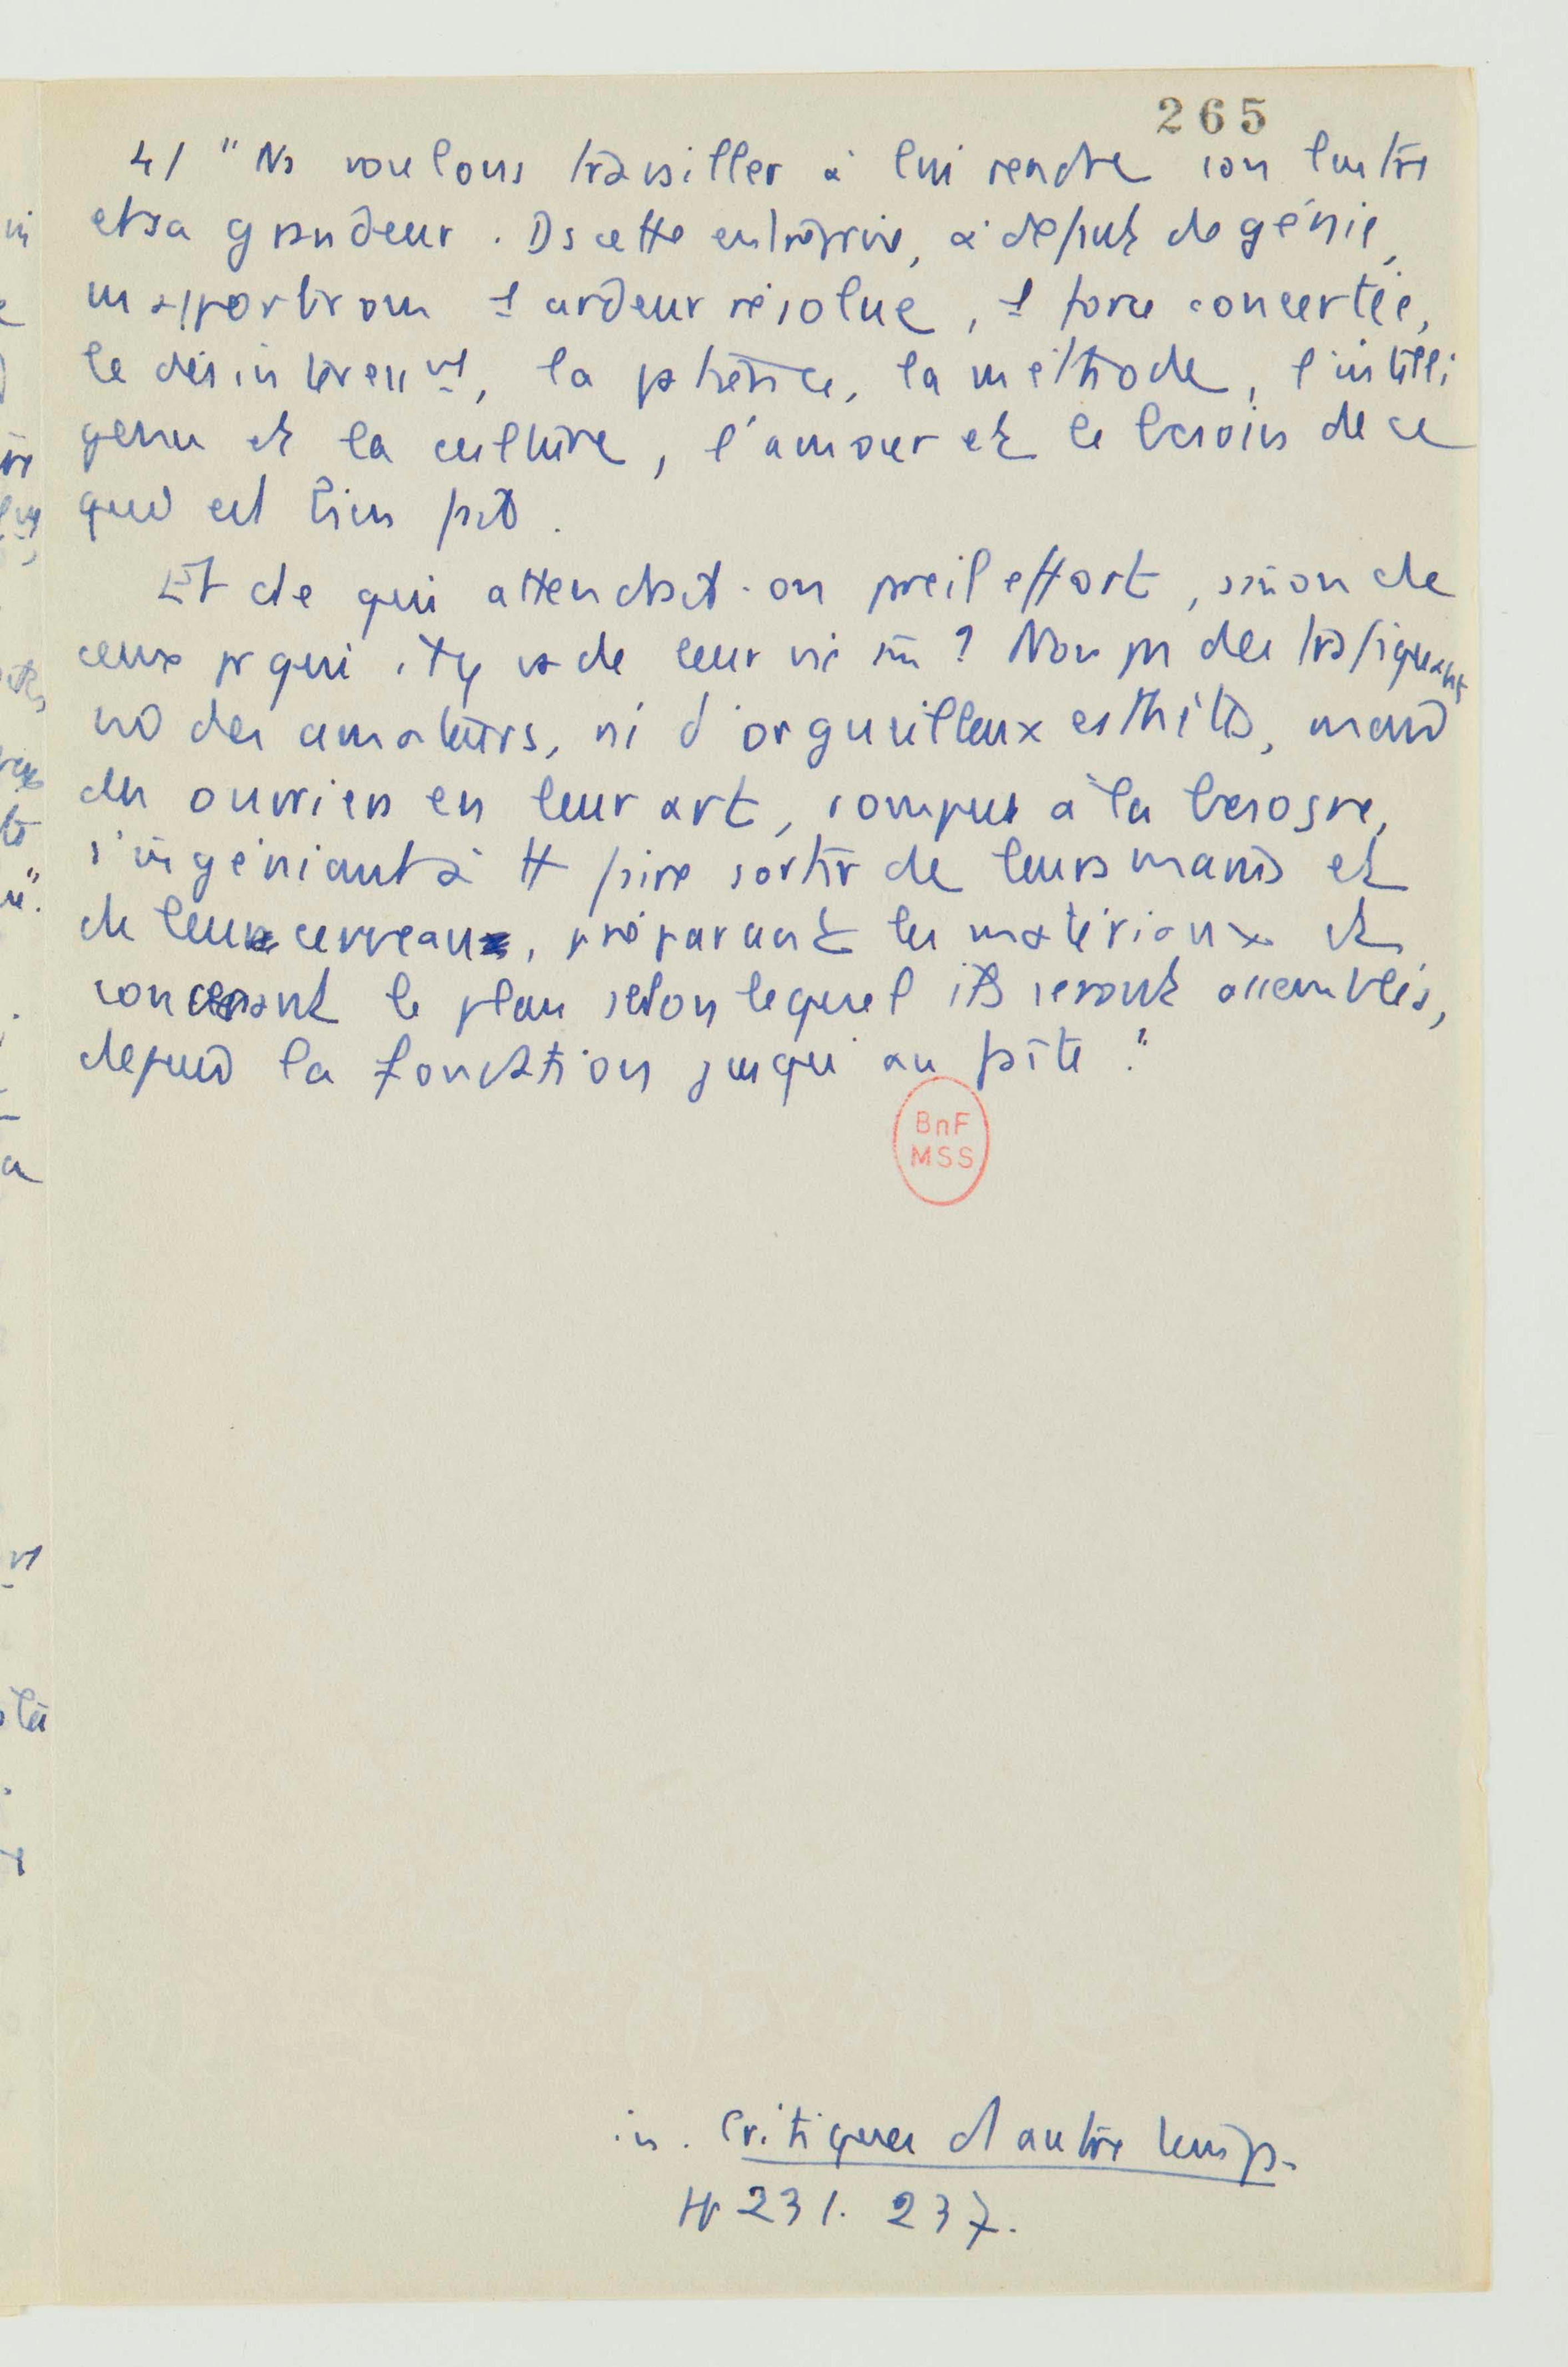 265
4/ "Ns voulons travailler à lui rendre son lustre
et sa grandeur. Ds cette entreprise, à défaut de génie,
ns apporterons 1 ardeur résolue, 1 force concertée,
le désintéressmt, la patience, la méthode, l'intelli
gence et la culture, l'amour et le besoin de ce
qui est bien fait.
Et de qui attendrait-on pareil effort, sinon de
ceux pr qui il y va de leur vie m̂ ? Non pas des trafiquants
ni des amateurs, ni d'orgueilleux esthètes, mais
des ouvriers en leur art, rompus à la besogne,
s'ingéniant à tt faire sortir de leurs mains et
de leur cerveau, préparant les matériaux et
concevant le plan selon lequel ils seront assemblés,
depuis la fondation jusqu'au faîte."
BnF
MSS
in. Critiques d'autre temps.
pp 231. 237.